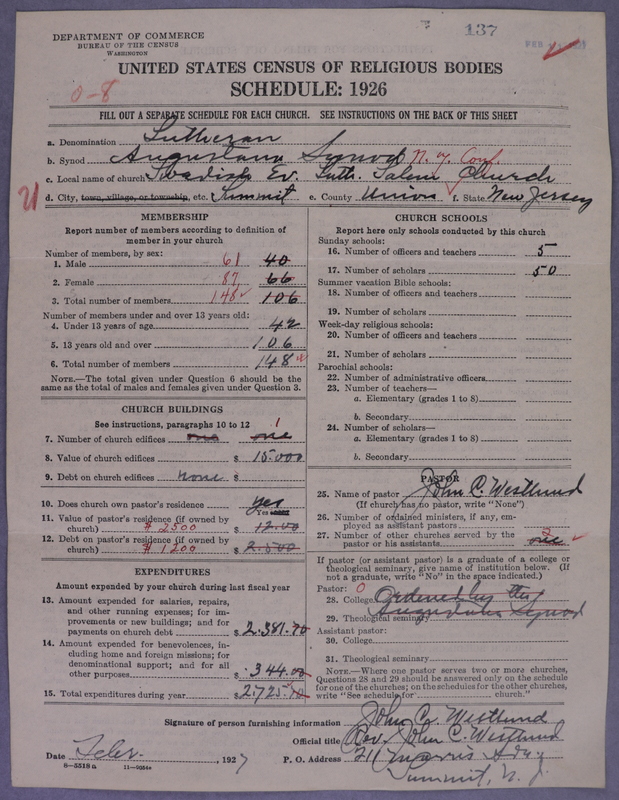 137
DEPARTMENT OF COMMERCE
BUREAU OF THE CENSUS
WASHINGTON
FEB
UNITED STATES CENSUS OF RELIGIOUS BODIES
SCHEDULE: 1926
0-8
FILL OUT A SEPARATE SCHEDULE FOR EACH CHURCH. SEE INSTRUCTIONS ON THE BACK OF THIS SHEET
a. Denomination Lutheran
b. Synod Augustana Synod N. Y. Conf.
c. Local name of church Swedish Ev. Luth. Salem Church
d. City, town, village, or township, etc. Summit e. County Union f. State New Jersey
MEMBERSHIP
Report number of members according to definition of
member in your church
Number of members, by sex:
1. Male 61 40
2. Female 87 66
3. Total number of members 148 106
Number of members under and over 13 years old:
4. Under 13 years of age 42
5. 13 years old and over 106
6. Total number of members 148
NOTE.—The total given under Question 6 should be the
same as the total of males and females given under Question 3.
CHURCH BUILDINGS
See instructions, paragraphs 10 to 12
7. Number of church edifices one one 1
8. Value of church edifices $ 15.000
9. Debt on church edifices none $
10. Does church own pastor's residence yes
Yes
11. Value of pastor's residence (if owned by
church) $ 2500 $
12. Debt on pastor's residence (if owned by
church) $ 1200 $ 2.500
EXPENDITURES
Amount expended by your church during last fiscal year
13. Amount expended for salaries, repairs,
and other running expenses; for im-
provements or new buildings; and for
payments on church debt $ 2.381.70
14. Amount expended for benevolences, in-
cluding home and foreign missions; for
denominational support; and for all
other purposes $ 344.00
15. Total expenditures during year $ 2725.70
CHURCH SCHOOLS
Report here only schools conducted by this church
Sunday schools:
16. Number of officers and teachers 5
17. Number of scholars 50
Summer vacation Bible schools:
18. Number of officers and teachers
19. Number of scholars
Week-day religious schools:
20. Number of officers and teachers
21. Number of scholars
Parochial schools:
22. Number of administrative officers
23. Number of teachers—
a. Elementary (grades 1 to 8)
b. Secondary
24. Number of scholars—
a. Elementary (grades 1 to 8)
b. Secondary
PASTOR
25. Name of pastor John C. Westlund
(If church has no pastor, write "None")
26. Number of ordained ministers, if any, em-
ployed as assistant pastors
27. Number of other churches served by the
pastor or his assistants one 0
If pastor (or assistant pastor) is a graduate of a college or
theological seminary, give name of institution below. (If
not a graduate, write "No" in the space indicated.)
Pastor: 0
28. College Ordened by the
29. Theological seminary Augustana Synod
Assistant pastor:
30. College
31. Theological seminary
NOTE.—Where one pastor serves two or more churches,
Questions 28 and 29 should be answered only on the schedule
for one of the churches; on the schedules for the other churches,
write "See schedule for church."
Signature of person furnishing information John C. Westlund
Official title Rev. John C. Westlund
Date Febr. , 1927 P. O. Address 211 Morris Ave
Summit, N. J.
8—5518 a 11—9554a